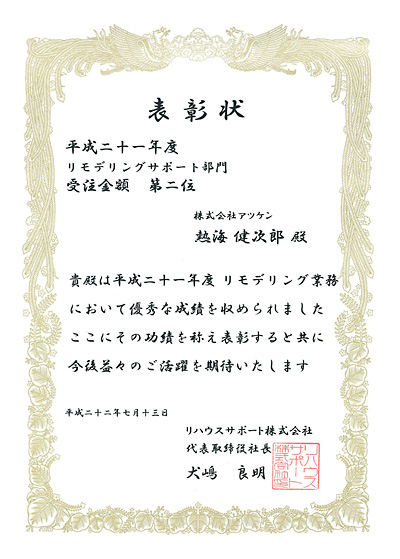 表彰状
平成二十一年度
リモデリングサポート部門
受注金額 第二位
株式会社アツケン
熱海 健次郎 殿
貴殿は平成二十一年度 リモデリング業務
において優秀な成績を収められました
ここにその功績を称え表彰すると共に
今後益々のご活躍を期待いたします
平成二十二年七月十三日
リハウスサポート株式会社
代表取締役社長
犬嶋 良明
リハウス
サポート
株式会社